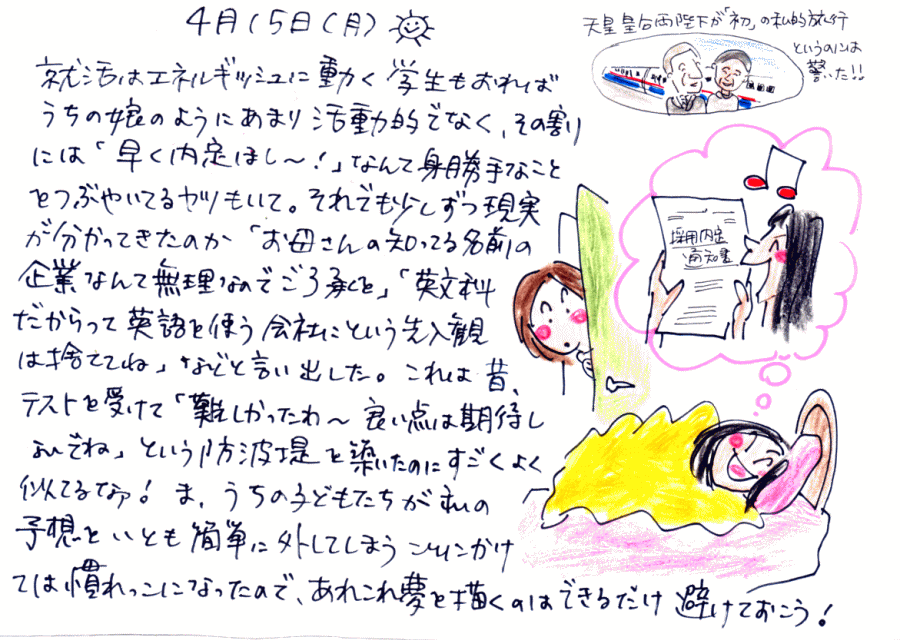 4月15日(月)
天皇皇后両陛下が「初」の私的旅行
というのには
驚いた!!
就活はエネルギッシュに動く学生もおれば
うちの娘のようにあまり活動的でなく、その割り
には「早く内定ほし〜!」なんて身勝手なこと
をつぶやいてるヤツもいて。それでも少しずつ現実
が分かってきたのか「お母さんの知ってる名前の
企業なんて無理なのでご了承を」「英文科
だからって英語を使う会社にという先入観
は捨ててね」などと言い出した。これは昔、
テストを受けて「難しかったわ〜良い点は期待し
ないでね」という防波堤を築いたのにすごくよく
似てるなァ!ま、うちの子どもたちが私の
予想をいとも簡単に外してしまうことにかけ
ては慣れっこになったので、あれこれ夢を描くのはできるだけ避けておこう!
採用内定
通知書